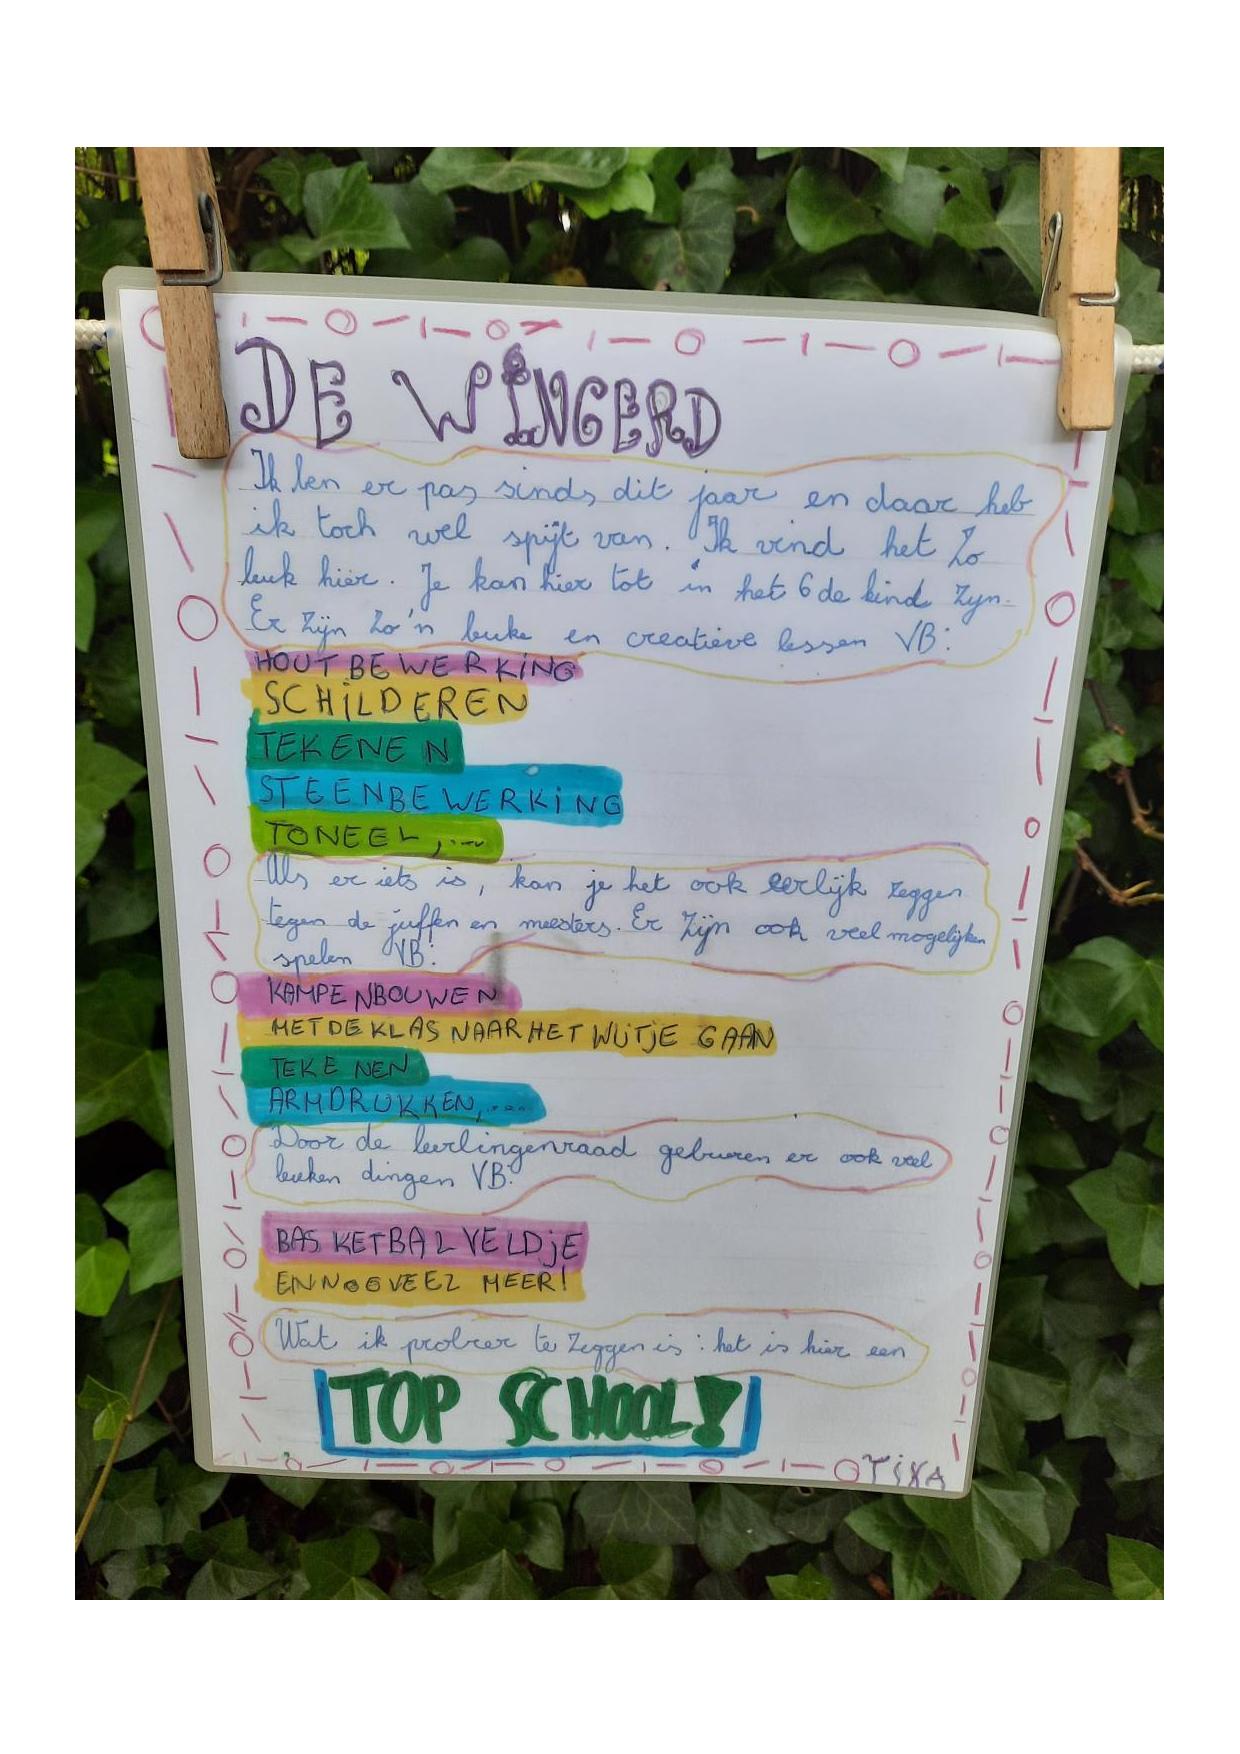 DE WINGERD
Ik ben er pas sinds dit jaar en daar heb
ik toch wel spijt van. Ik vind het zo
leuk hier. Je kan hier tot in het 6de kind zijn.
Er zijn zo'n leuke en creatieve lessen VB:
HOUTBEWERKING
SCHILDEREN
TEKENEN
STEENBEWERKING
TONEEL,...
Als er iets is, kan je het ook eerlijk zeggen
tegen de juffen en meesters. Er zijn ook veel mogelijken
spelen VB:
KAMPENBOUWEN
MET DE KLAS NAAR HET WIJTJE GAAN
TEKENEN
ARMDRUKKEN,....
Door de leerlingenraad gebeuren er ook veel
leuken dingen VB:
BASKETBALVELDJE
EN NOG VEEL MEER!
Wat ik probeer te zeggen is: het is hier een
TOP SCHOOL!